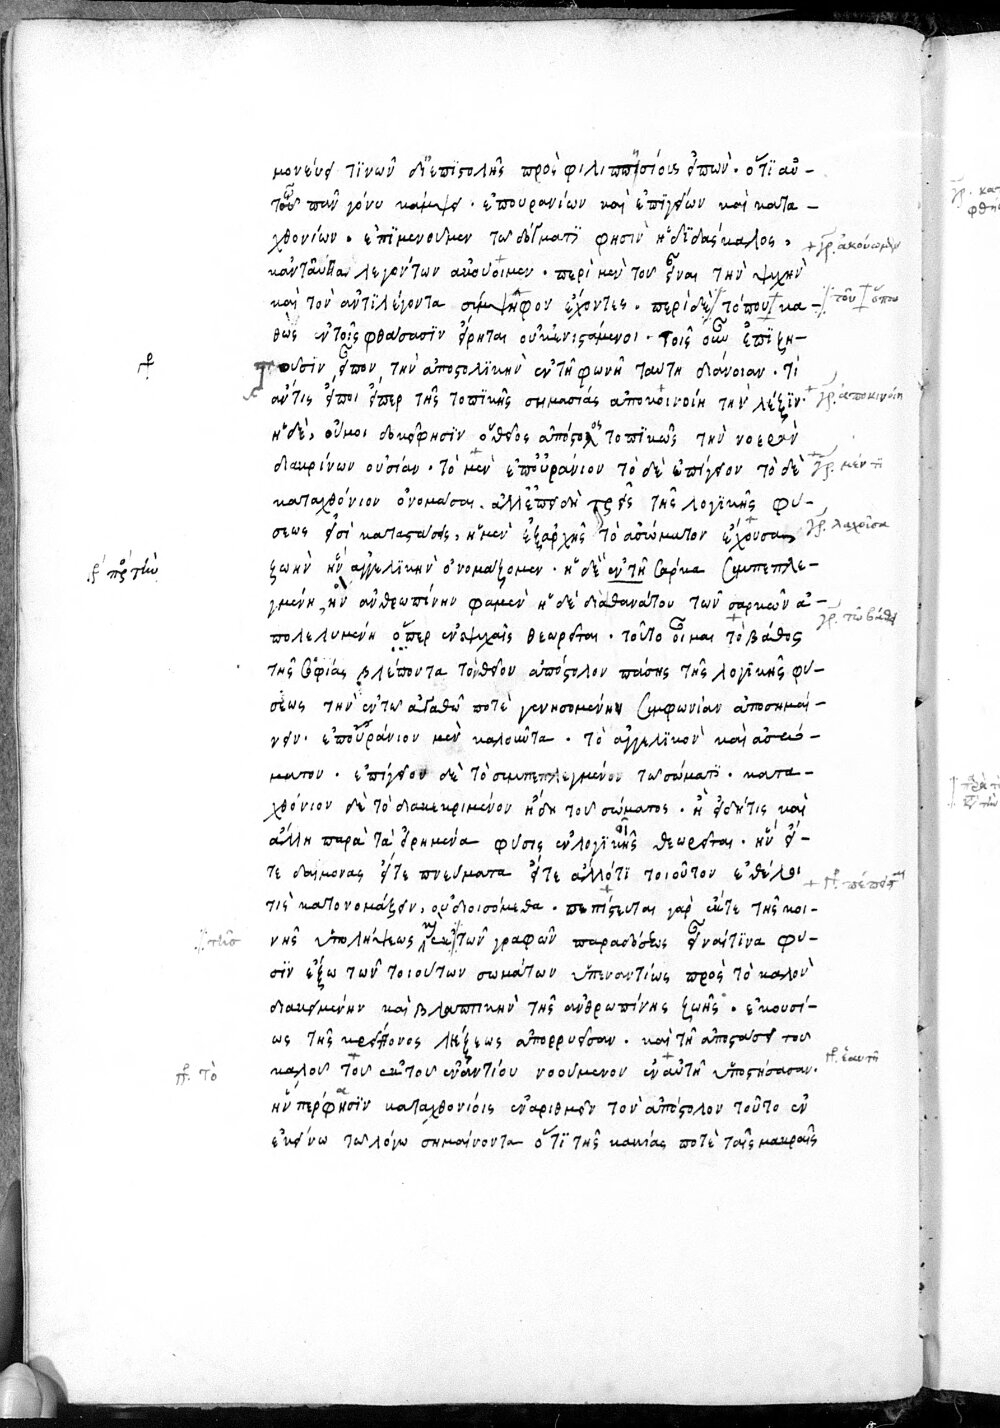 μονεύει τινῶν δι' ἐπιστολῆς πρὸς φιλιππησίοις εἰπών· ὅτι αὐ-
τῶ πᾶν γόνυ κάμψει· ἐπουρανίων καὶ ἐπιγείων καὶ κατα-
χθονίων· ἐπιμένουμεν τῶ δόγματι φησὶν ἡ διδάσκαλος,
κἀνταῦθα λεγόντων ἀκούοιμεν· περὶ μὲν τοῦ εἶναι τὴν ψυχὴν
καὶ τὸν ἀντιλέγοντα σύμψηφον ἔχοντες· περὶ δὲ τόπου κα-
θὼς ἐν τοῖς φθάσασιν εἴρηται οὐκ ἐνιστάμενοι· τοῖς οὖν ἐπιζη-
τοῦσιν εἶπον τὴν ἀποστολικὴν ἐν τῆ φωνῆ ταύτη διάνοιαν· τί
ἄν τις εἴποι εἴπερ τῆς τοπικῆς σημασίας ἀποκοινοίη τὴν λέξιν·
ἡ δὲ, οὔμοι δοκεῖ φησὶν ὁ θεῖος ἀπόστολος τοπικῶς τὴν νοερὰν
διακρίνων οὐσίαν· τὸ μὲν ἐπουράνιον τὸ δὲ ἐπίγειον τὸ δὲ
καταχθόνιον ὀνομάσαι. ἀλλ' ἐπειδὴ τρεῖς τῆς λογικῆς φύ-
σεως εἰσὶ καταστάσεις, ἡ μὲν ἐξ ἀρχῆς τὸ ἀσώματον ἔχουσα
ζωὴν ἣν ἀγγελικὴν ὀνομάζομεν· ἡ δὲ ἐν τῆ σάρκα συμπεπλε-
γμένη, ἣν ἀνθρωπίνην φαμὲν ἡ δὲ διὰ θανάτου τῶν σαρκῶν ἀ-
πολελυμένη ὅπερ ἐν ψυχαῖς θεωρεῖται· τοῦτο οἶμαι τὸ βάθος
τῆς σοφίας βλέποντα τὸν θεῖον ἀπόστολον πάσης τῆς λογικῆς φύ-
σεως τὴν ἐν τῶ ἀγαθῶ ποτὲ γενησομένην συμφωνίαν ἀποσημαί-
νειν· ἐπουράνιον μὲν καλοῦντα· τὸ ἀγγελικὸν καὶ ἀσώ-
ματον· ἐπίγειον δὲ τὸ συμπεπλεγμένον τῶ σώματι· κατα-
χθόνιον δὲ τὸ διακεκριμένον ἤδη τοῦ σώματος· ἢ εἰ δή τις καὶ
ἄλλη παρὰ τὰ εἰρημένα φύσις ἐν λογικοῖς θεωρεῖται· ἣν εἴ-
τε δαίμονας εἴτε πνεύματα εἴτε ἄλλό τι τοιοῦτον ἐθέλοι
τὶς κατονομάζειν, οὐ διοισόμεθα· πεπίστευται γὰρ ἔκτε τῆς κοι-
νῆς ὑπολήψεως κ ἐκ τῶν γραφῶν παραδόσεως εἶναί τινα φύ-
σιν ἔξω τῶν τοιούτων σωμάτων ὑπεναντίως πρὸς τὸ καλὸν
διακειμένην καὶ βλαπτικὴν τῆς ἀνθρωπίνης ζωῆς· ἑκουσί-
ως τῆς κρείττονος λήξεως ἀπορρυεῖσαν· καὶ τῆ ἀποστάσει τοῦ
καλοῦ τοῦ ἐκ τοῦ ἐναντίου νοούμενον ἐν αὐτῆ ὑποστήσασαν.
ἥν περ φησὶν καταχθονίοις ἐναριθμεῖν τὸν ἀπόστολον τοῦτο ἐν
ἐκείνω τῶ λόγω σημαίνοντα ὅτι τῆς κακίας ποτὲ ταῖς μακραῖς
γρ. ἀκούωμεν
τοῦ ὅπου
γρ. ἀποκινοίη
γρ. μέν τι
γρ. λαχοῦσα
γρ. τῶ βάθει
γρ. ἑαυτῆ
γρ. τὸ
τῆς
πρὸς τὴν